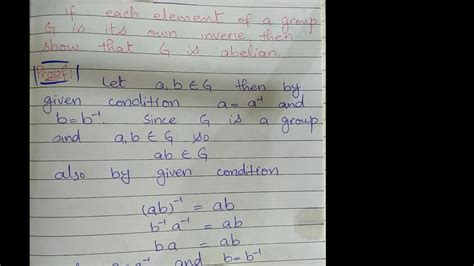 If each element of a group
G is its own inverse then
show that G is abelian.
Proof: Let a, b ∈ G then by
given condition a = a⁻¹ and
b = b⁻¹. Since G is a group
and a, b ∈ G so
ab ∈ G
also by given condition
(ab)⁻¹ = ab
b⁻¹ a⁻¹ = ab
ba = ab
and b = b⁻¹